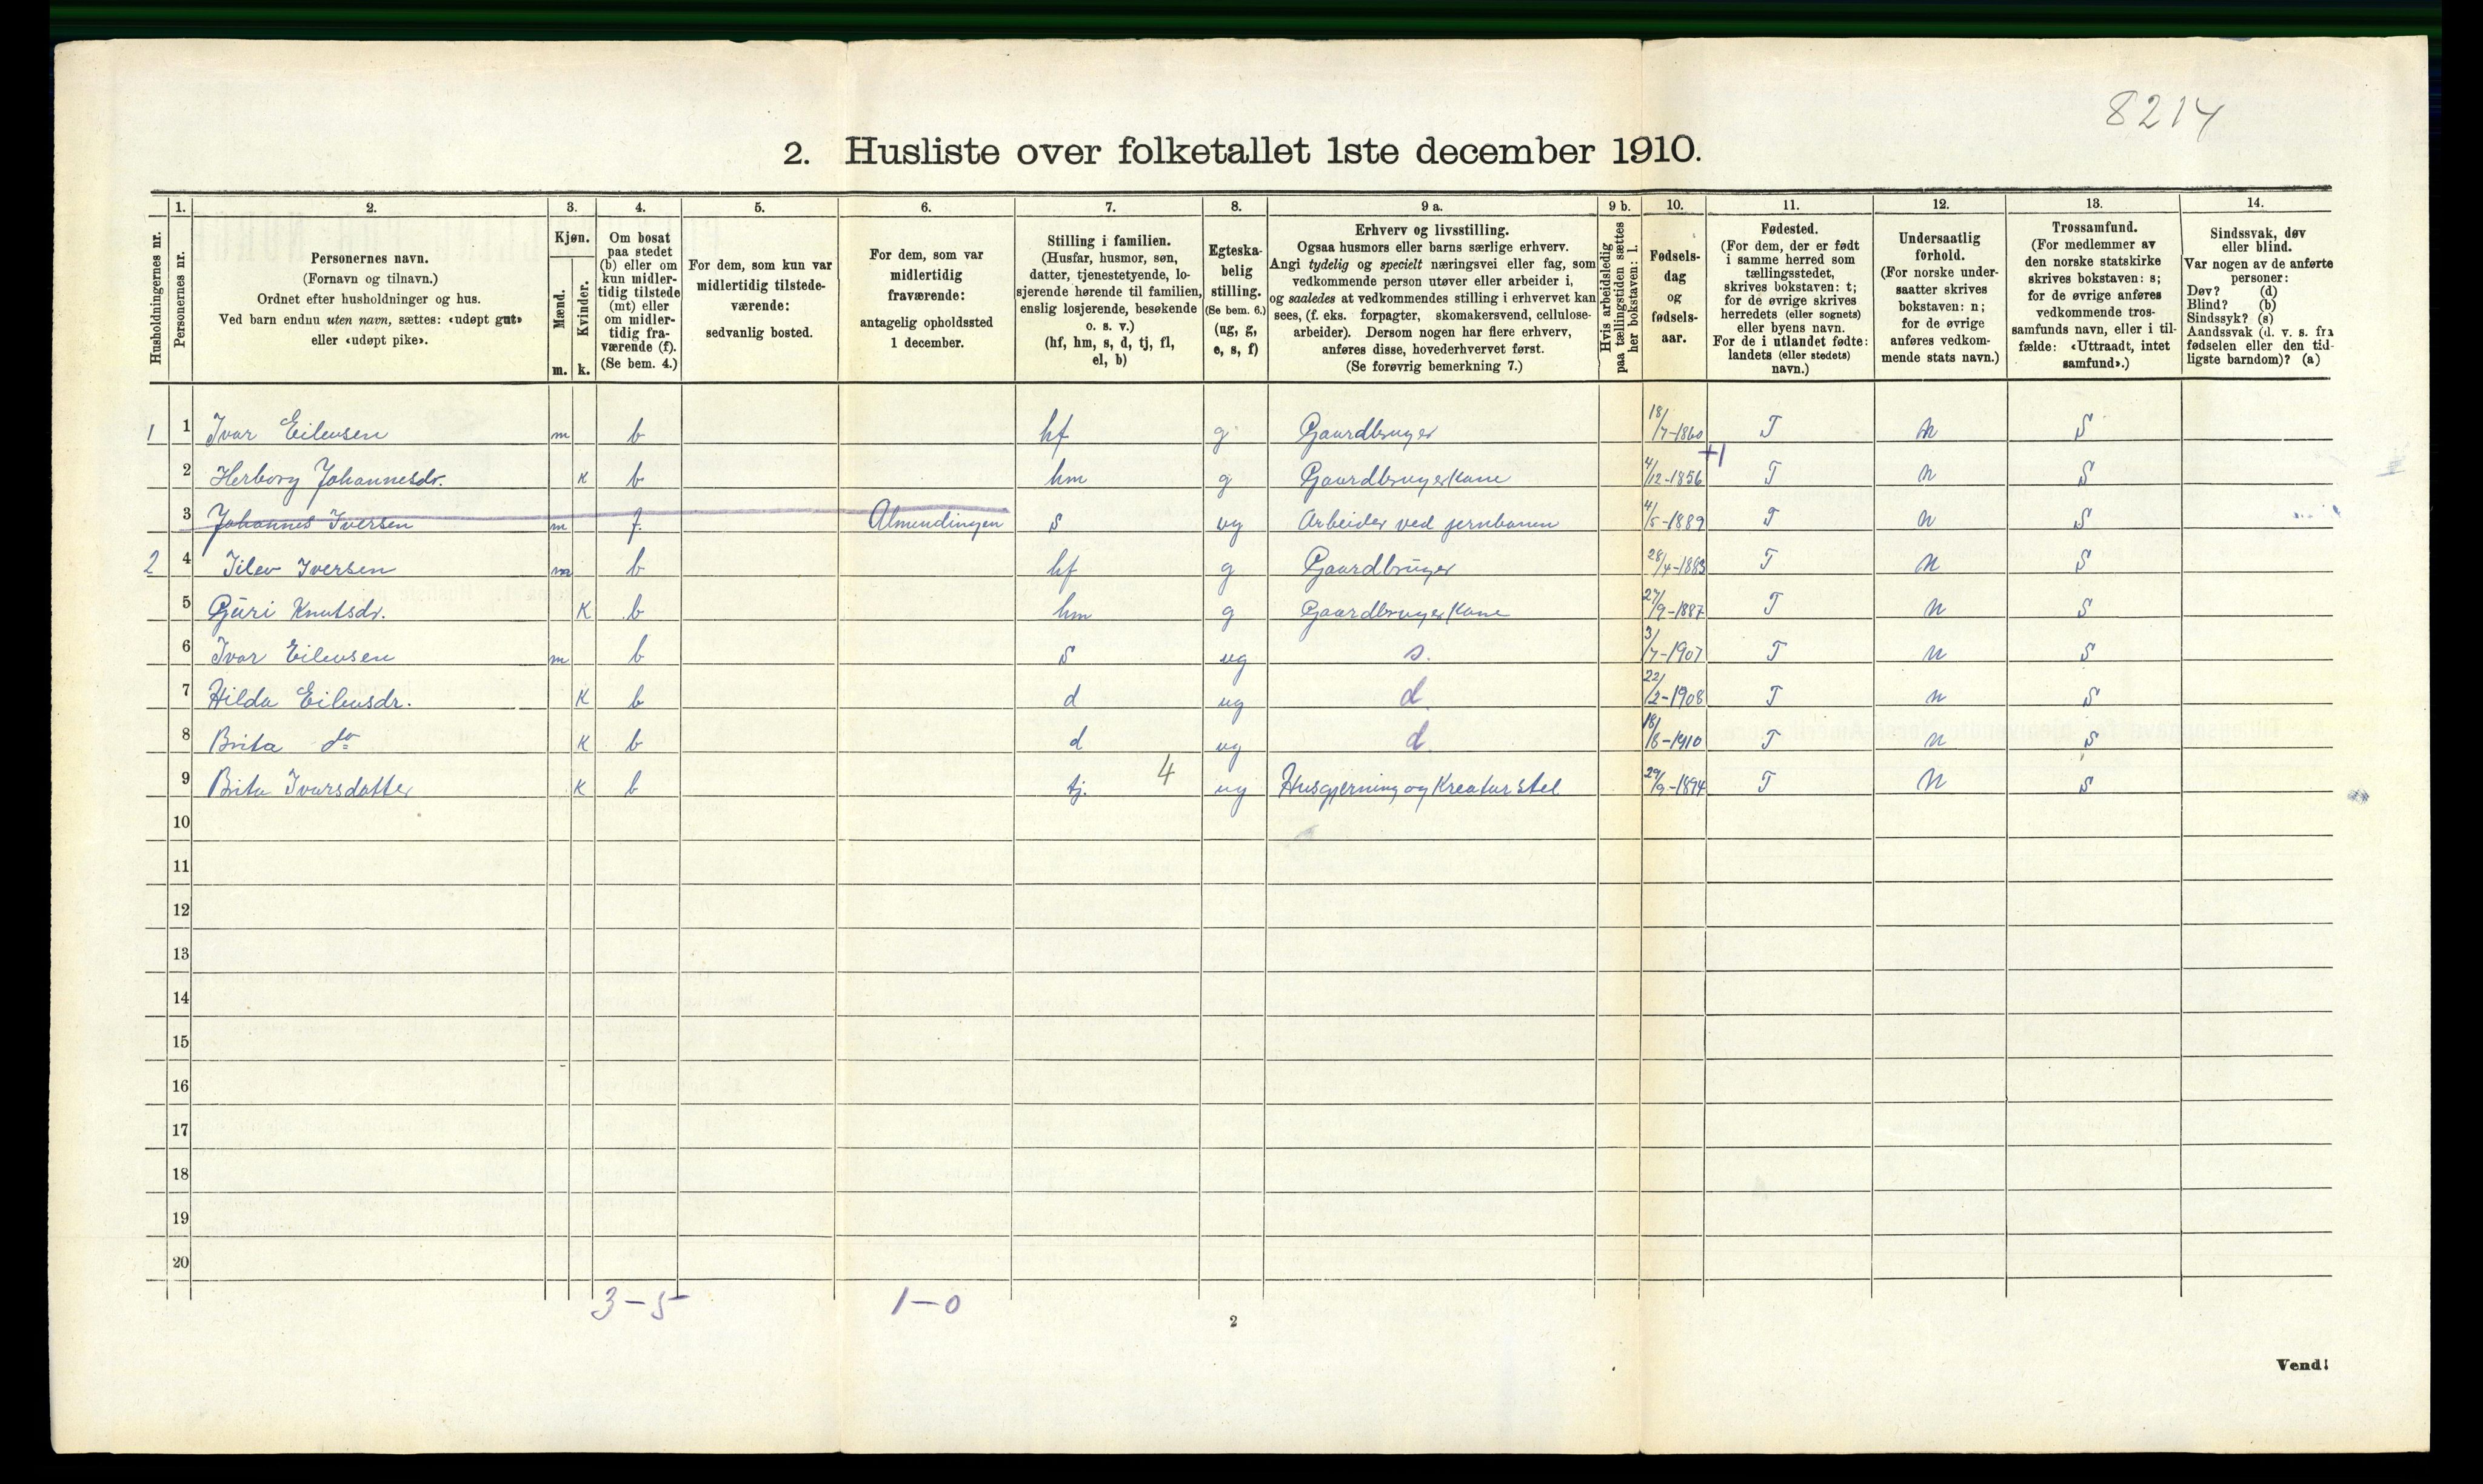 8214
2. Husliste over folketallet 1ste december 1910.
Husholdningernes nr.
1.
Personernes nr.
2.
Personernes navn.
(Fornavn og tilnavn.)
Ordnet efter husholdninger og hus.
Ved barn endnu uten navn, sættes: «udøpt gut»
eller «udøpt pike».
3.
Kjøn.
Mænd.
Kvinder.
m. k.
4.
Om bosat
paa stedet
(b) eller om
kun midler-
tidig tilstede
(mt) eller
om midler-
tidig fra-
værende (f).
(Se bem. 4.)
5.
For dem, som kun var
midlertidig tilstede-
værende:
sedvanlig bosted.
6.
For dem, som var
midlertidig
fraværende:
antagelig opholdssted
1 december.
7.
Stilling i familien.
(Husfar, husmor, søn,
datter, tjenestetyende, lo-
sjerende hørende til familien,
enslig losjerende, besøkende
o. s. v.)
(hf, hm, s, d, tj, fl,
el, b)
8.
Egteska-
belig
stilling.
(Se bem. 6.)
(ug, g,
e, s, f)
9 a.
Erhverv og livsstilling.
Ogsaa husmors eller barns særlige erhverv.
Angi tydelig og specielt næringsvei eller fag, som
vedkommende person utøver eller arbeider i,
og saaledes at vedkommendes stilling i erhvervet kan
sees, (f. eks. forpagter, skomakersvend, cellulose-
arbeider). Dersom nogen har flere erhverv,
anføres disse, hovederhvervet først.
(Se forøvrig bemerkning 7.)
9 b.
Hvis arbeidsledig
paa tællingstiden sættes
her bokstaven: l.
10.
Fødsels-
dag
og
fødsels-
aar.
11.
Fødested.
(For dem, der er født
i samme herred som
tællingsstedet,
skrives bokstaven: t;
for de øvrige skrives
herredets (eller sognets)
eller byens navn.
For de i utlandet fødte:
landets (eller stedets)
navn.)
12.
Undersaatlig
forhold.
(For norske under-
saatter skrives
bokstaven: n;
for de øvrige
anføres vedkom-
mende stats navn.)
13.
Trossamfund.
(For medlemmer av
den norske statskirke
skrives bokstaven: s;
for de øvrige anføres
vedkommende tros-
samfunds navn, eller i til-
fælde: «Uttraadt, intet
samfund».)
14.
Sindssvak, døv
eller blind.
Var nogen av de anførte
personer:
Døv? (d)
Blind? (b)
Sindssyk? (s)
Aandssvak (d. v. s. fra
fødselen eller den tid-
ligste barndom)? (a)
1 1 Ivar Eilevsen m b hf g Gaardbruger 18/7-1860 T n S
+1
2 Herborg Johannesdr. k b hm g Gaardbrugerkone 4/12-1856 T n S
3 Johannes Iversen m f. Almendingen s ug Arbeider ved jernbanen 4/5-1889 T n S
2 4 Eilev Iversen m b hf g Gaardbruger 28/4-1883 T n S
5 Guri Knutsdr. K b hm g Gaardbrugerkone 27/9-1887 T n S
6 Ivar Eilevsen m b s ug s. 3/7-1907 T n S
7 Hilda Eilevsdr. K b d ug d. 22/2-1908 T n S
8 Brita do K b d ug d. 18/8-1910 T n S
9 Brita Ivarsdatter K b tj. 4 ug Husgjerning og Kreaturstel 29/9-1894 T n S
10
11
12
13
14
15
16
17
18
19
20
3-5 1-0
2
Vend!